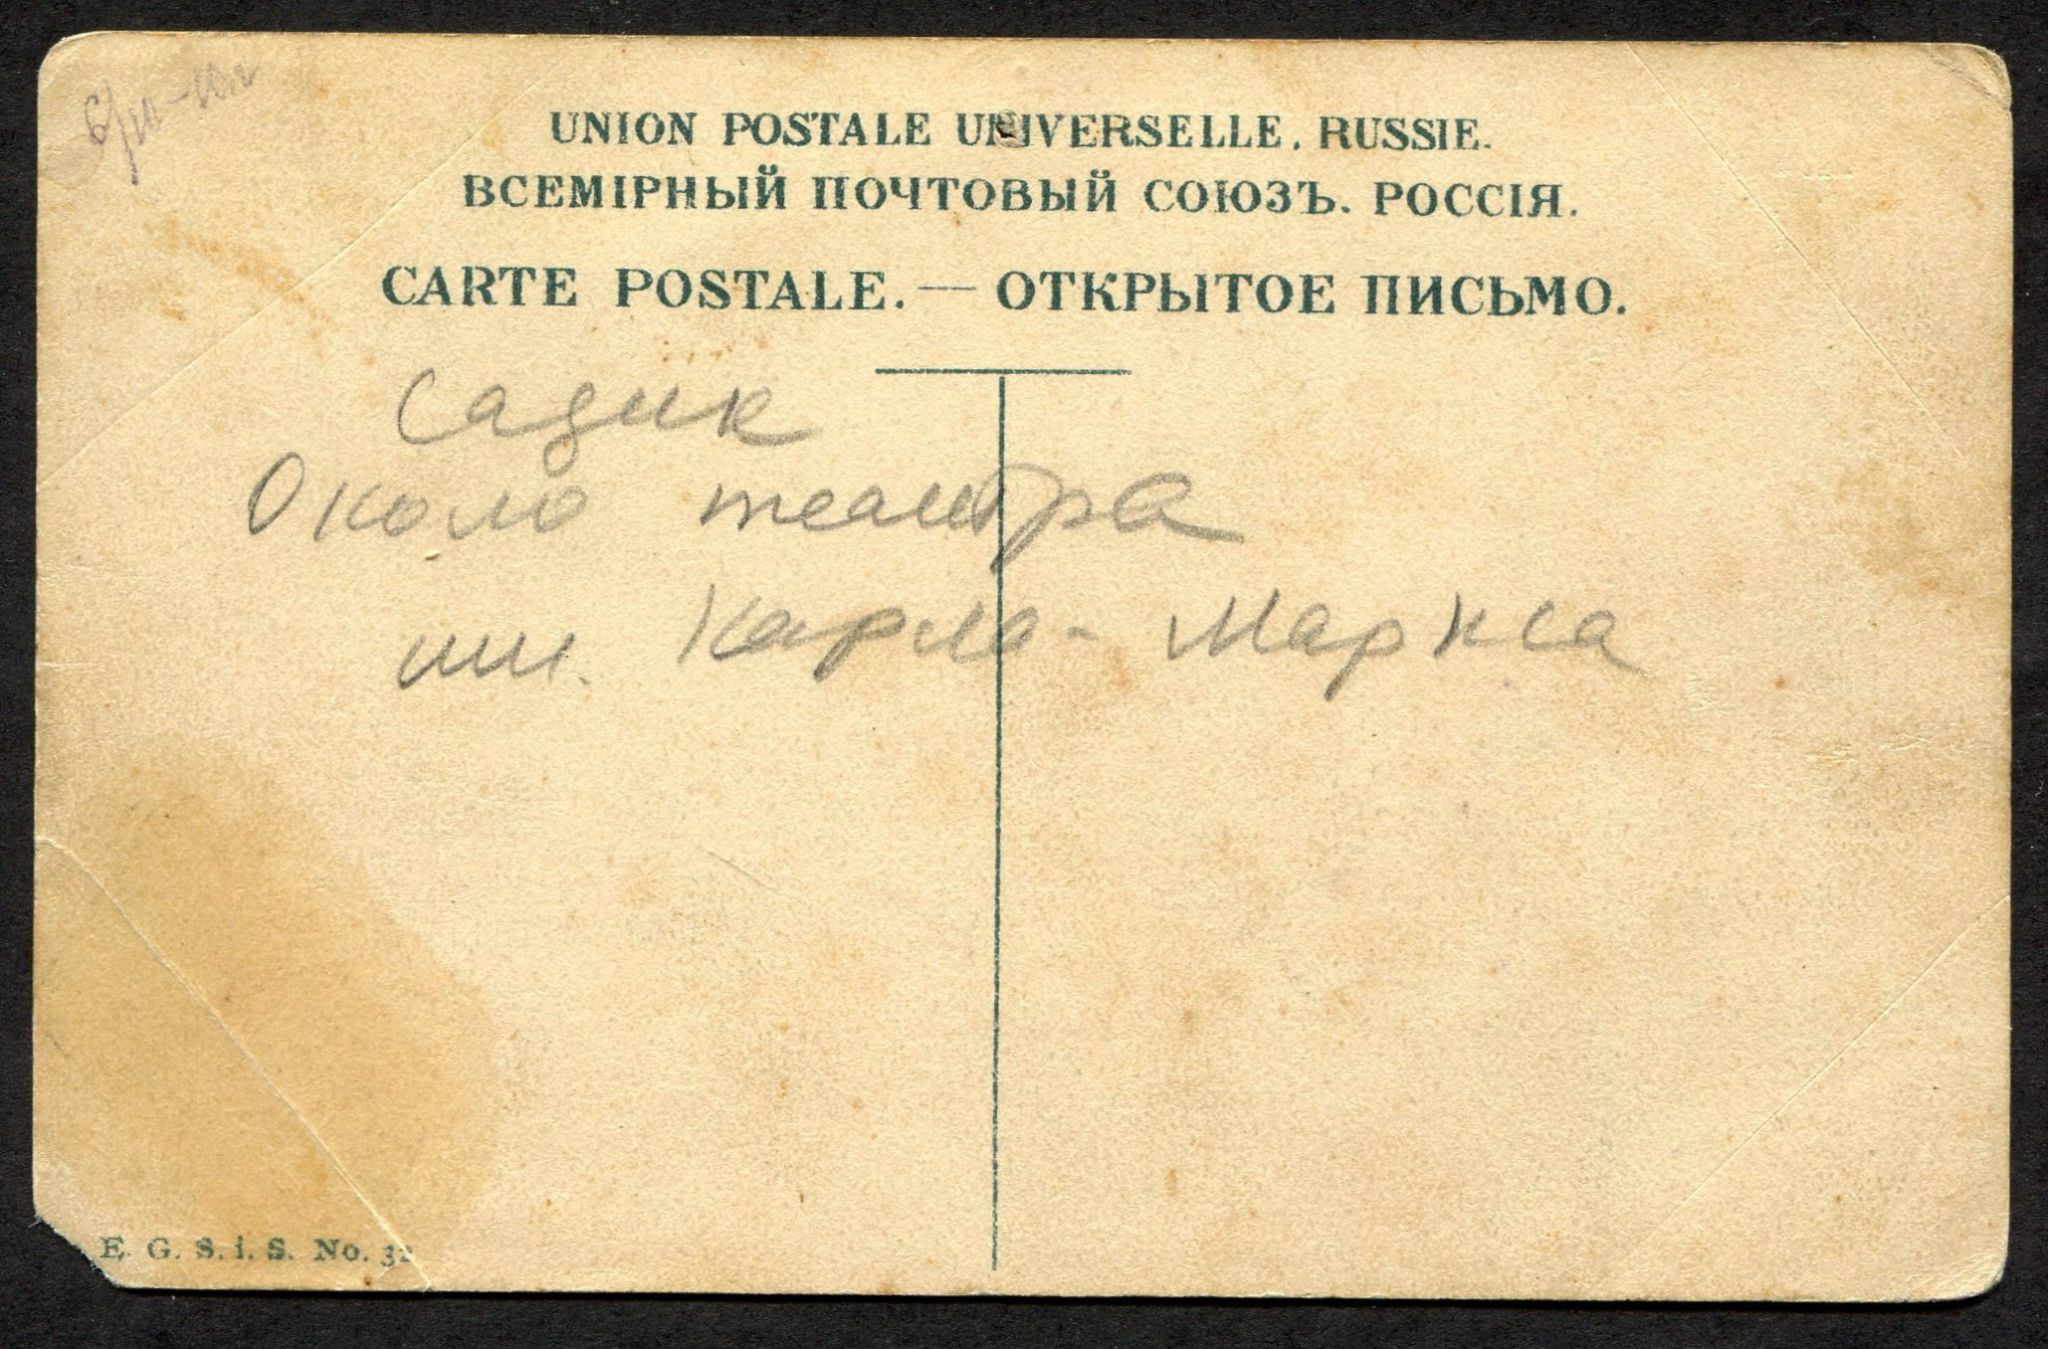 UNION POSTALE UNIVERSELLE. RUSSIE.
ВСЕМІРНЫЙ ПОЧТОВЫЙ СОЮЗЪ. РОССІЯ.
CARTE POSTALE. — ОТКРЫТОЕ ПИСЬМО.
Садик
Около театра
им. Карла-Маркса
E. G. S. i. S. No. 32